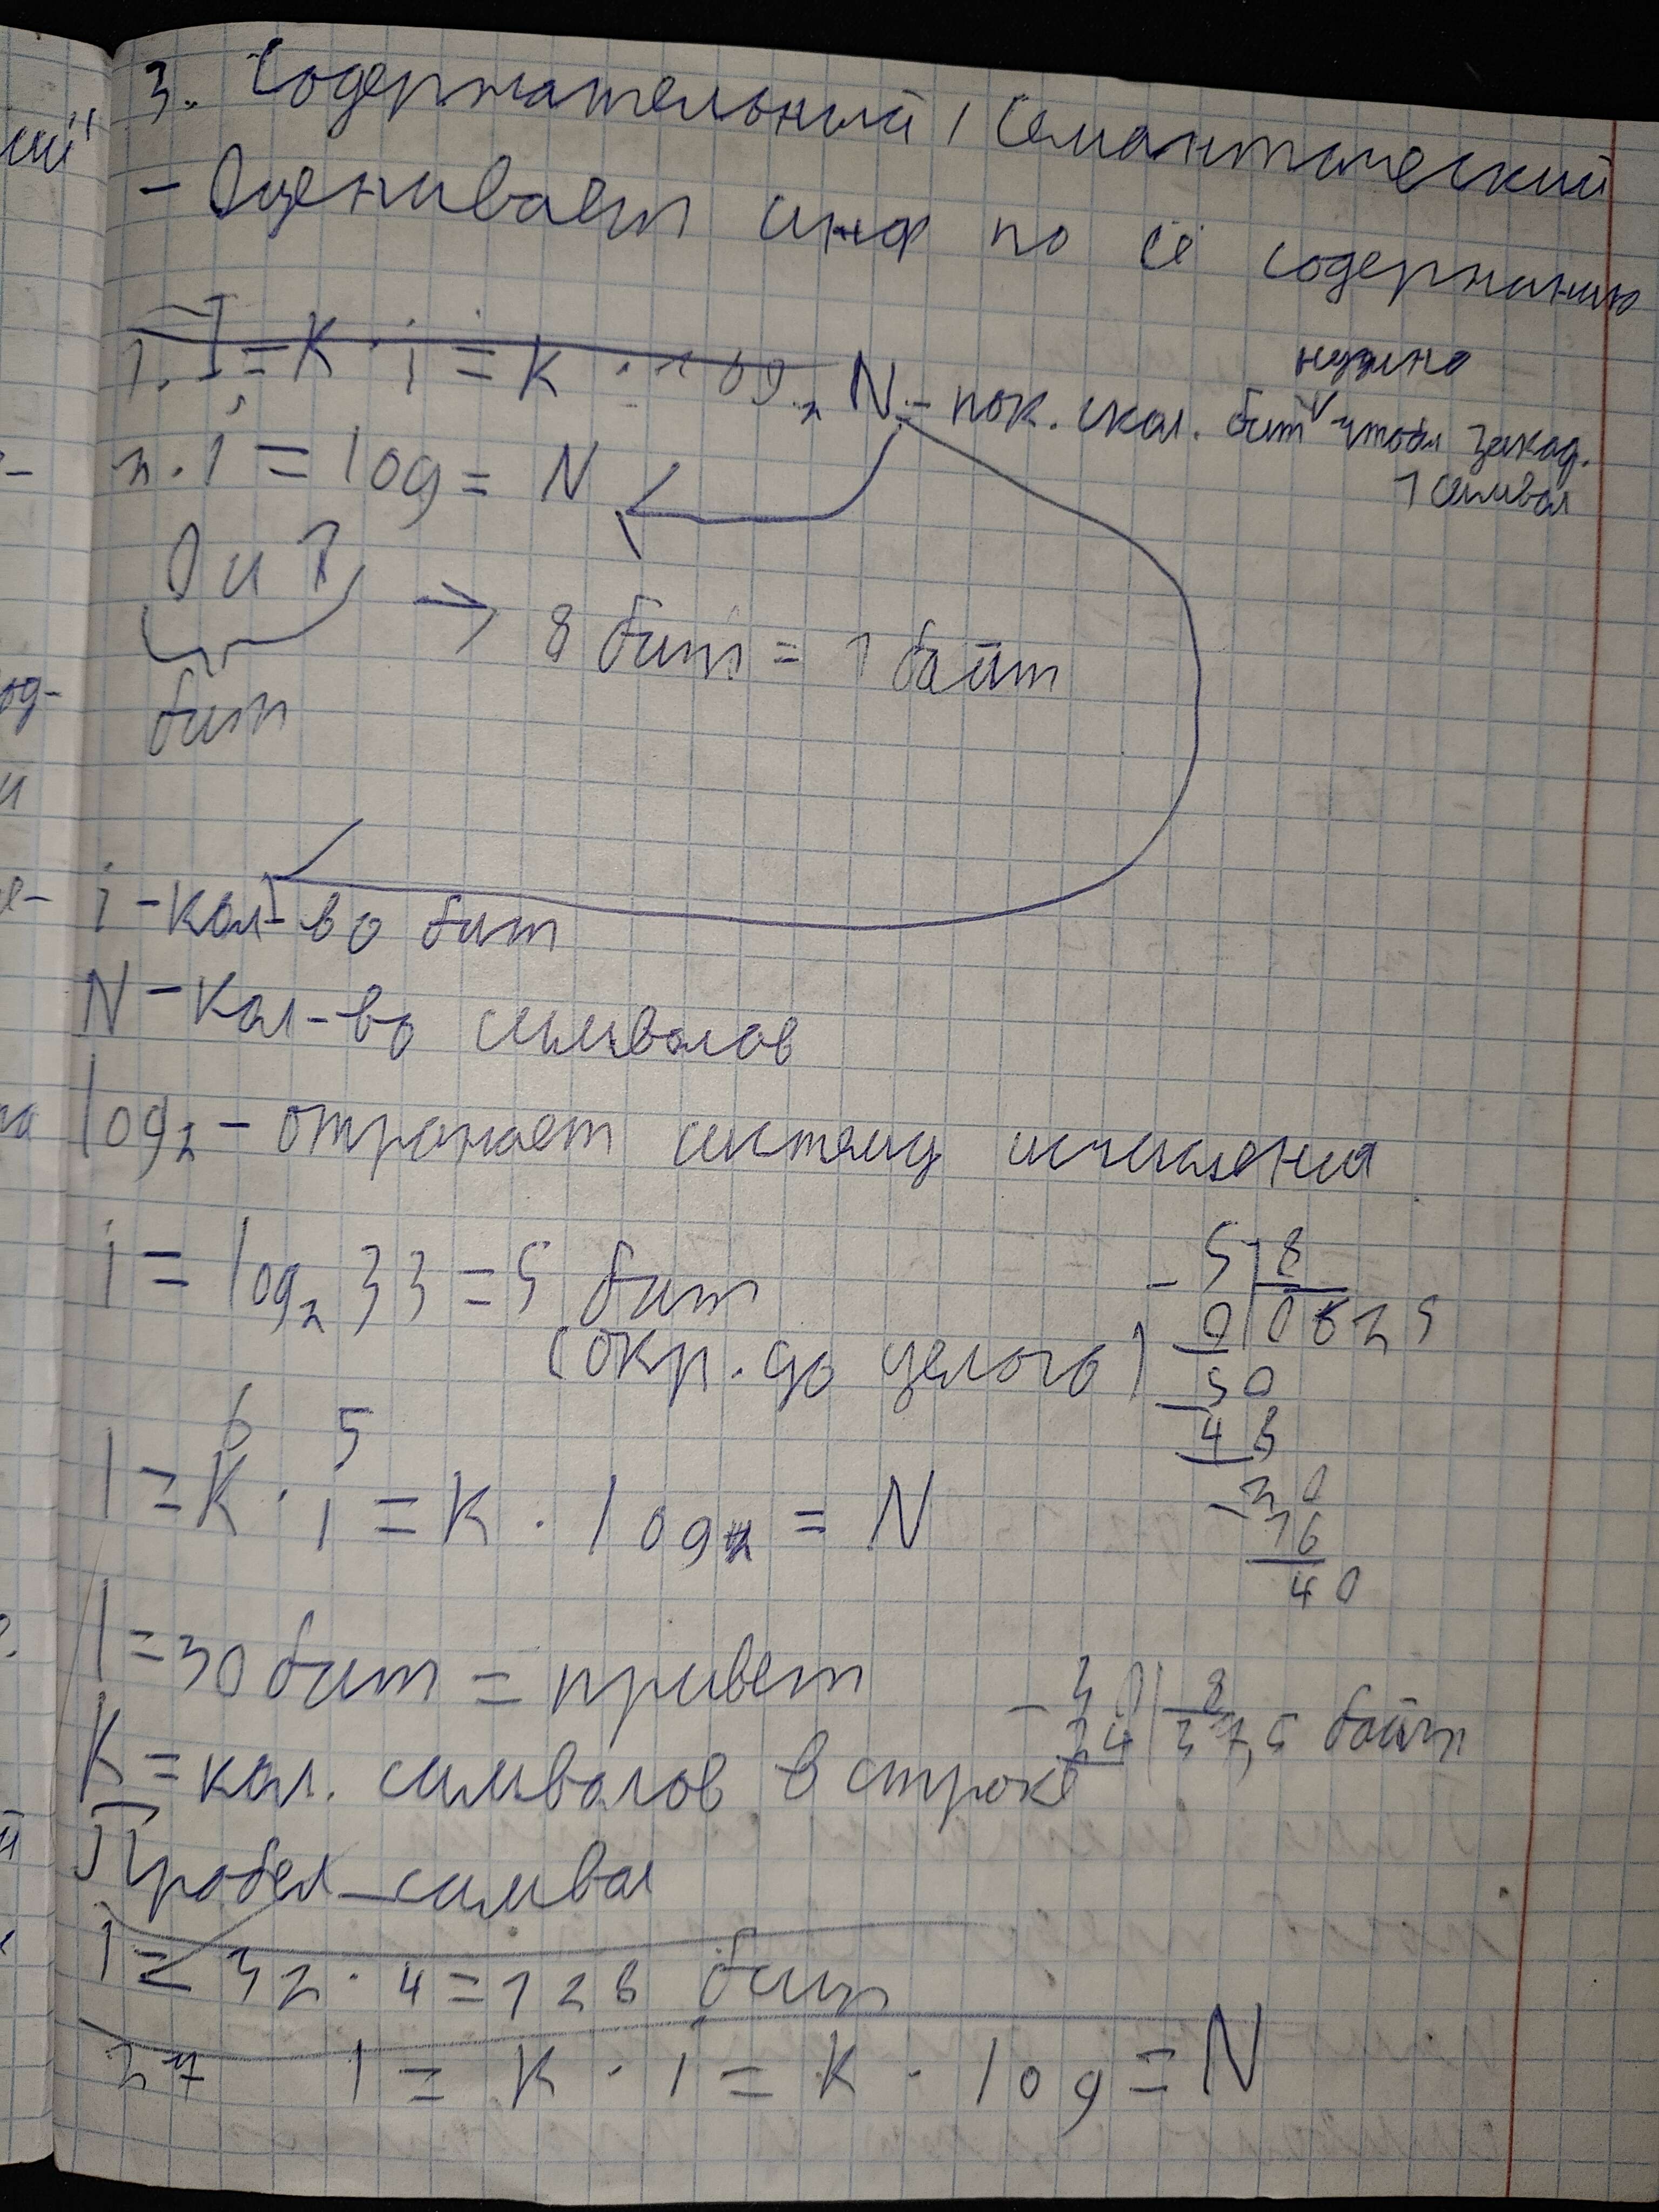 3. Содержательный / Семантический
- Оценивает инф по её содержанию
1. I = K · i = K · log₂ N - пок. скол. бит нужно чтобы закод. 1 символ
2. i = log = N
0 и 1 → 8 бит = 1 байт
бит
i - кол-во бит
N - кол-во символов
log₂ - отражает систему исчисления
i = log₂ 33 = 5 бит
(окр. до целого)
5 | 8
0 | 0625
50
48
20
16
40
6 5
I = K · i = K · log₂ = N
I = 30 бит = привет
30 | 8
24 | 3,75 байт
K = кол. символов в строке
Пробел - символ
I = 32 · 4 = 128 бит
27 I = K · i = K · log = N